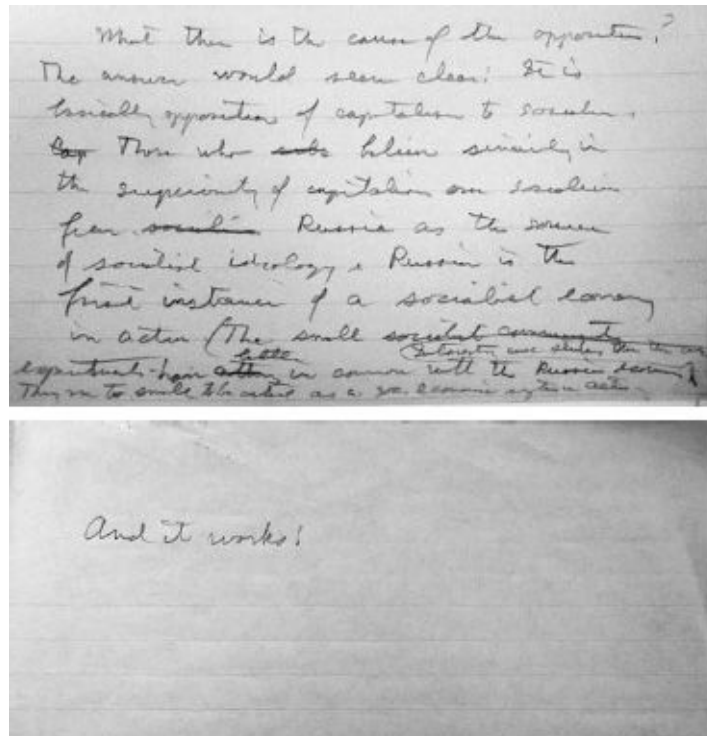 What then is the cause of the opposition?
The answer would seem clear: It is
basically opposition of capitalism to socialism.
Cap Those who subs believe sincerely in
the superiority of capitalism over socialism
fear socialism Russia as the source
of socialist ideology. Russia is the
first instance of a socialist economy
in action (The small socialist community
experiments have little in common with the Russian economy
They are to small to be critical as a economic system action
And it works!